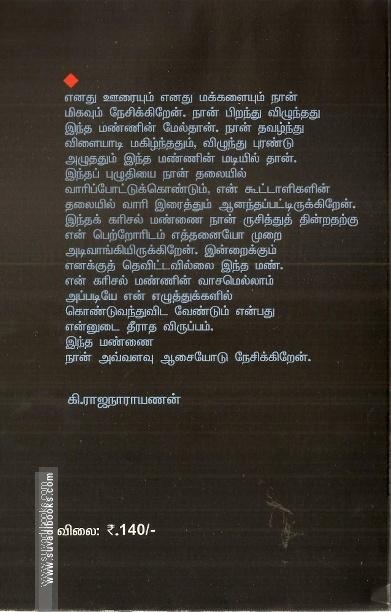 எனது ஊரையும் எனது மக்களையும் நான்
மிகவும் நேசிக்கிறேன். நான் பிறந்து விழுந்தது
இந்த மண்ணின் மேல்தான். நான் தவழ்ந்து
விளையாடி மகிழ்ந்ததும், விழுந்து புரண்டு
அழுததும் இந்த மண்ணின் மடியில் தான்.
இந்தப் புழுதியை நான் தலையில்
வாரிப்போட்டுக்கொண்டும், என் கூட்டாளிகளின்
தலையில் வாரி இரைத்தும் ஆனந்தப்பட்டிருக்கிறேன்.
இந்தக் கரிசல் மண்ணை நான் ருசித்துத் தின்றதற்கு
என் பெற்றோரிடம் எத்தனையோ முறை
அடிவாங்கியிருக்கிறேன். இன்றைக்கும்
எனக்குத் தெவிட்டவில்லை இந்த மண்.
என் கரிசல் மண்ணின் வாசமெல்லாம்
அப்படியே என் எழுத்துக்களில்
கொண்டுவந்துவிட வேண்டும் என்பது
என்னுடை தீராத விருப்பம்.
இந்த மண்ணை
நான் அவ்வளவு ஆசையோடு நேசிக்கிறேன்.
கி.ராஜநாராயணன்
விலை: ₹.140/-
www.suvadibooks.com